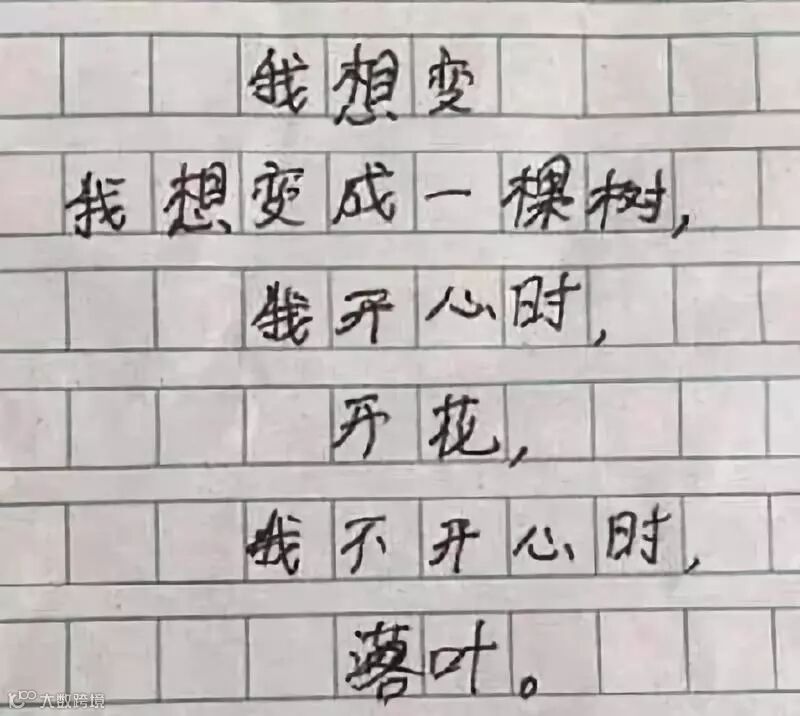 我想变
我想变成一棵树，
我开心时，
开花，
我不开心时，
落叶。
大数跨境